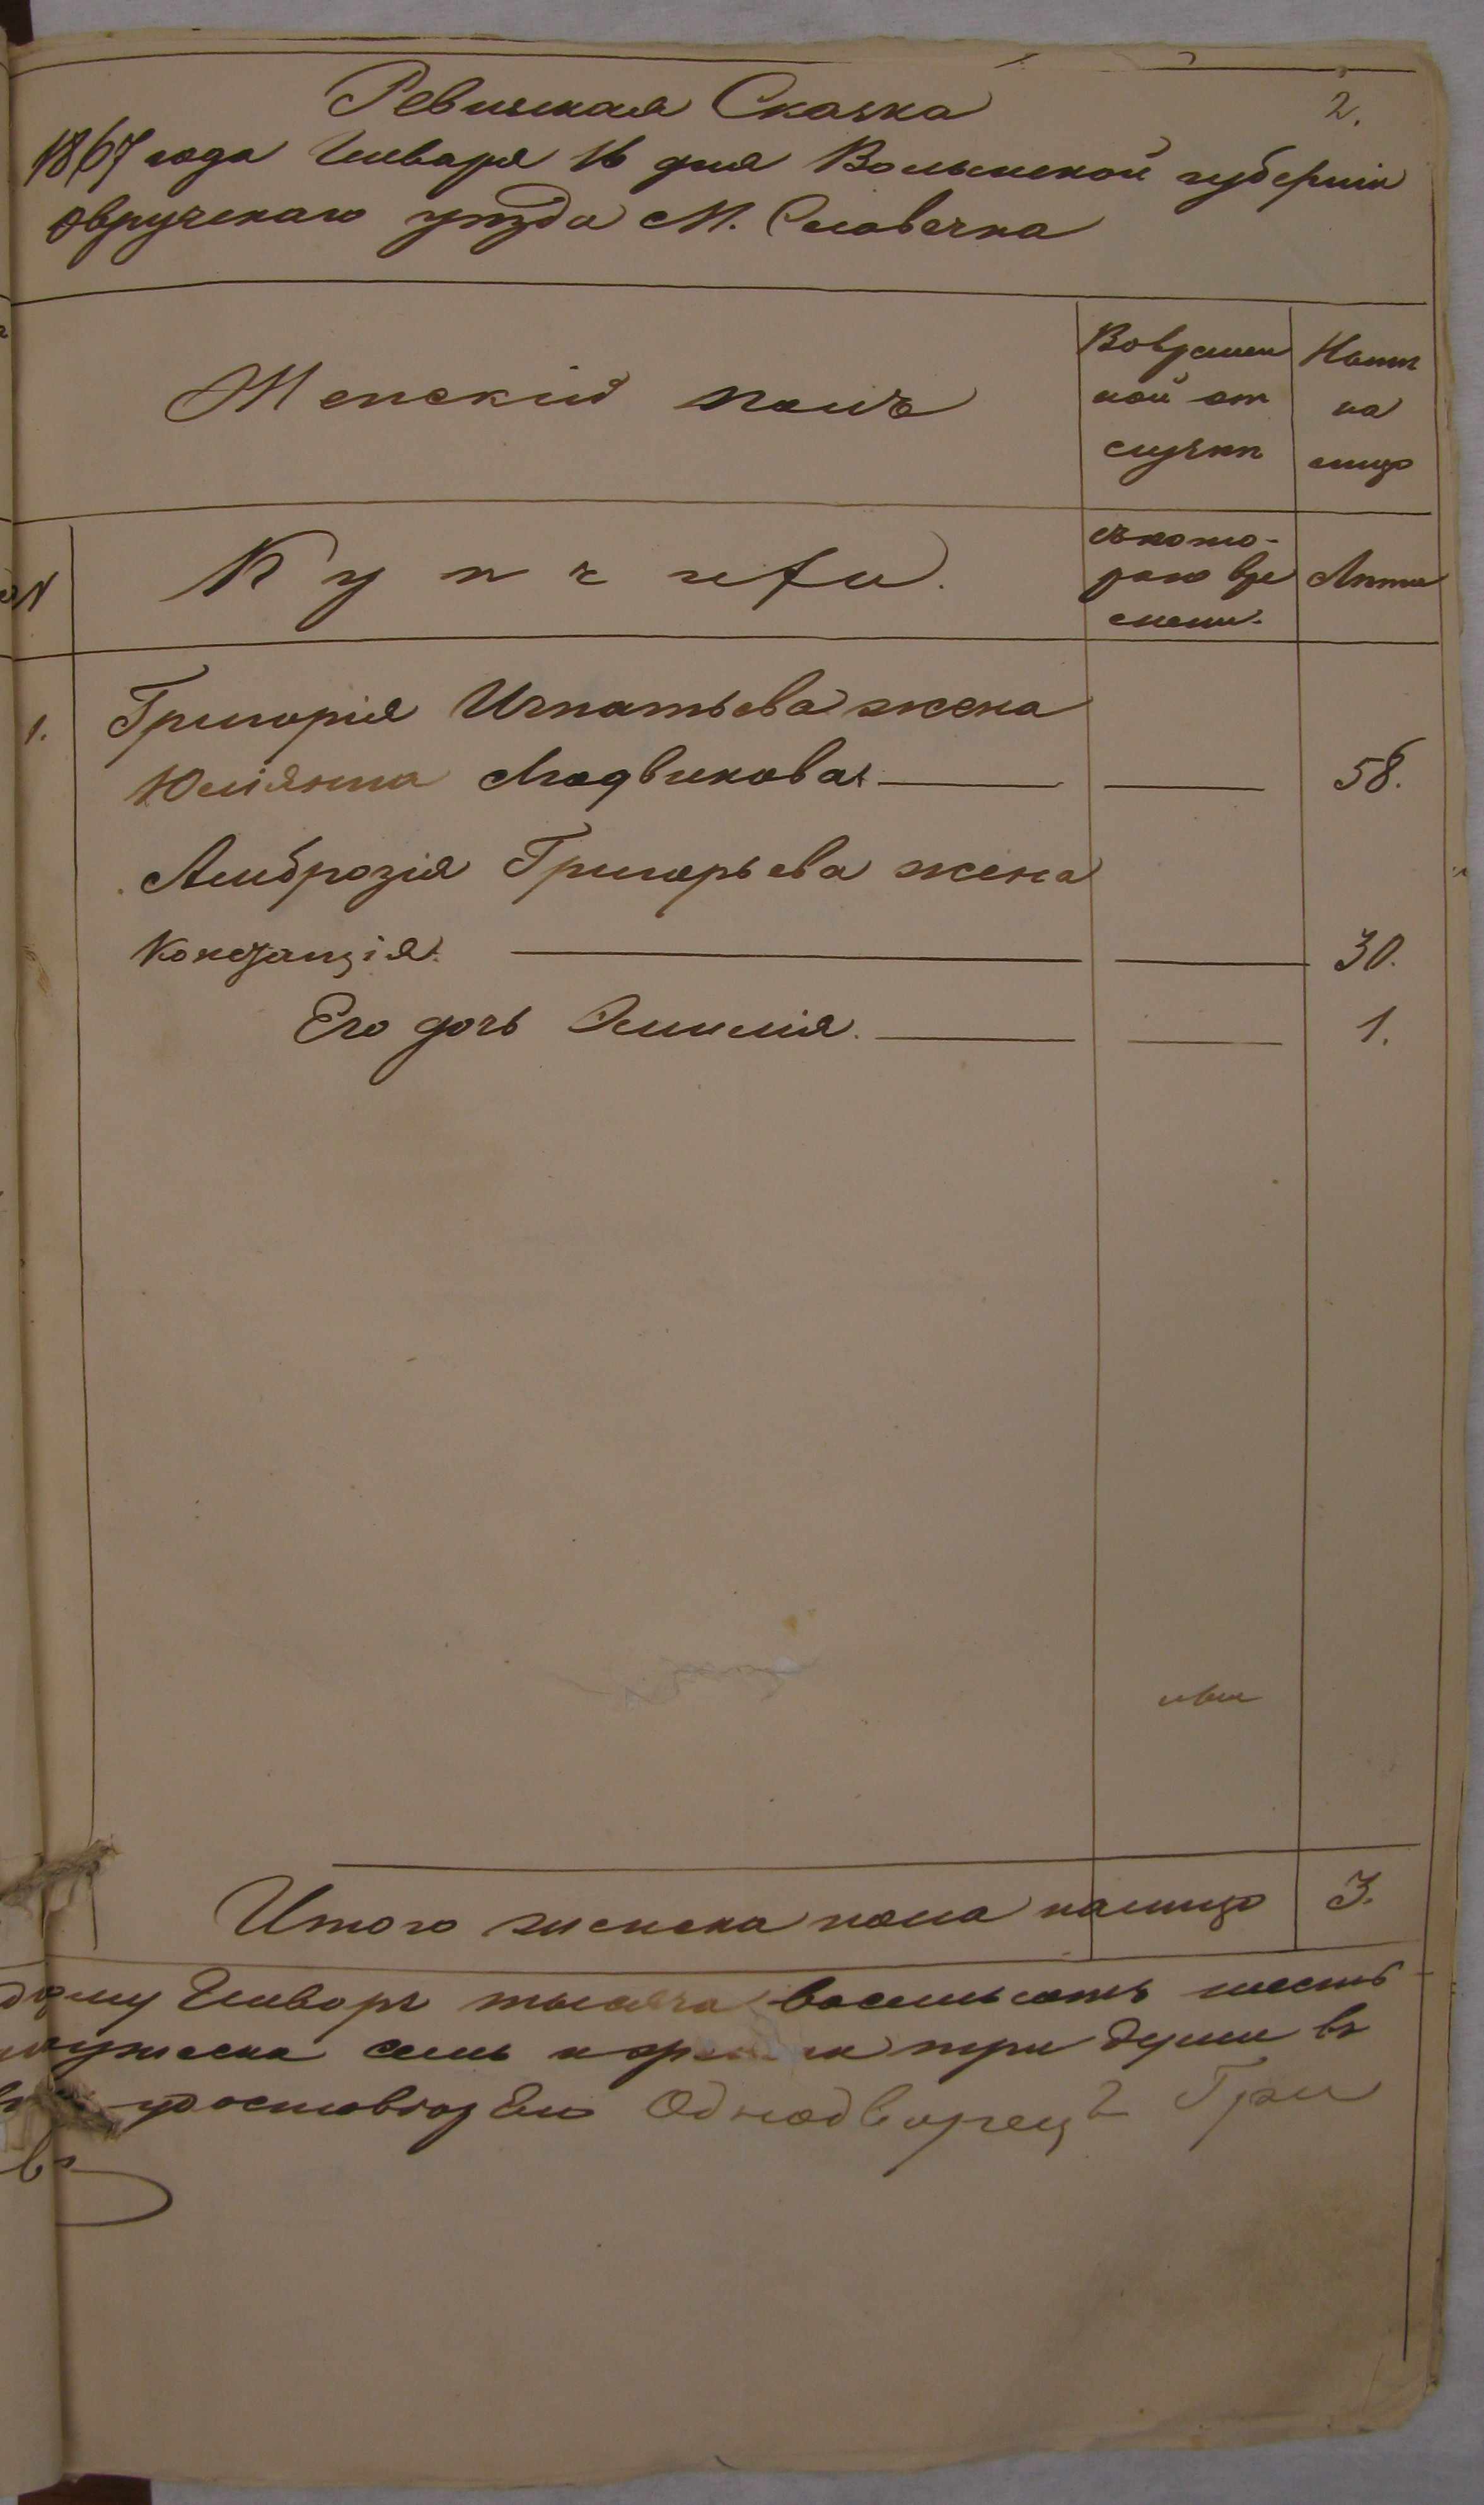 2.
Ревизская Сказка
1867 года Января 16 дня Волынской губерніи
Овручскаго уѣзда М. Словечна
Женскій полъ
Во времен
ной от
лучкѣ
Нынѣ
на
лицо
№
Купчихи.
съ кото-
раго вре
мени.
Лѣта
1. Григорія Игнатьева жена
Юліянна Людвикова 58.
Амброзія Григорьева жена
Констанція. 30.
Его дочь Эмилія. 1.
Итого женска пола налицо 3.
Генваря тысяча восемьсотъ шесть
семь и три души въ
Однодворецъ Гри
въ